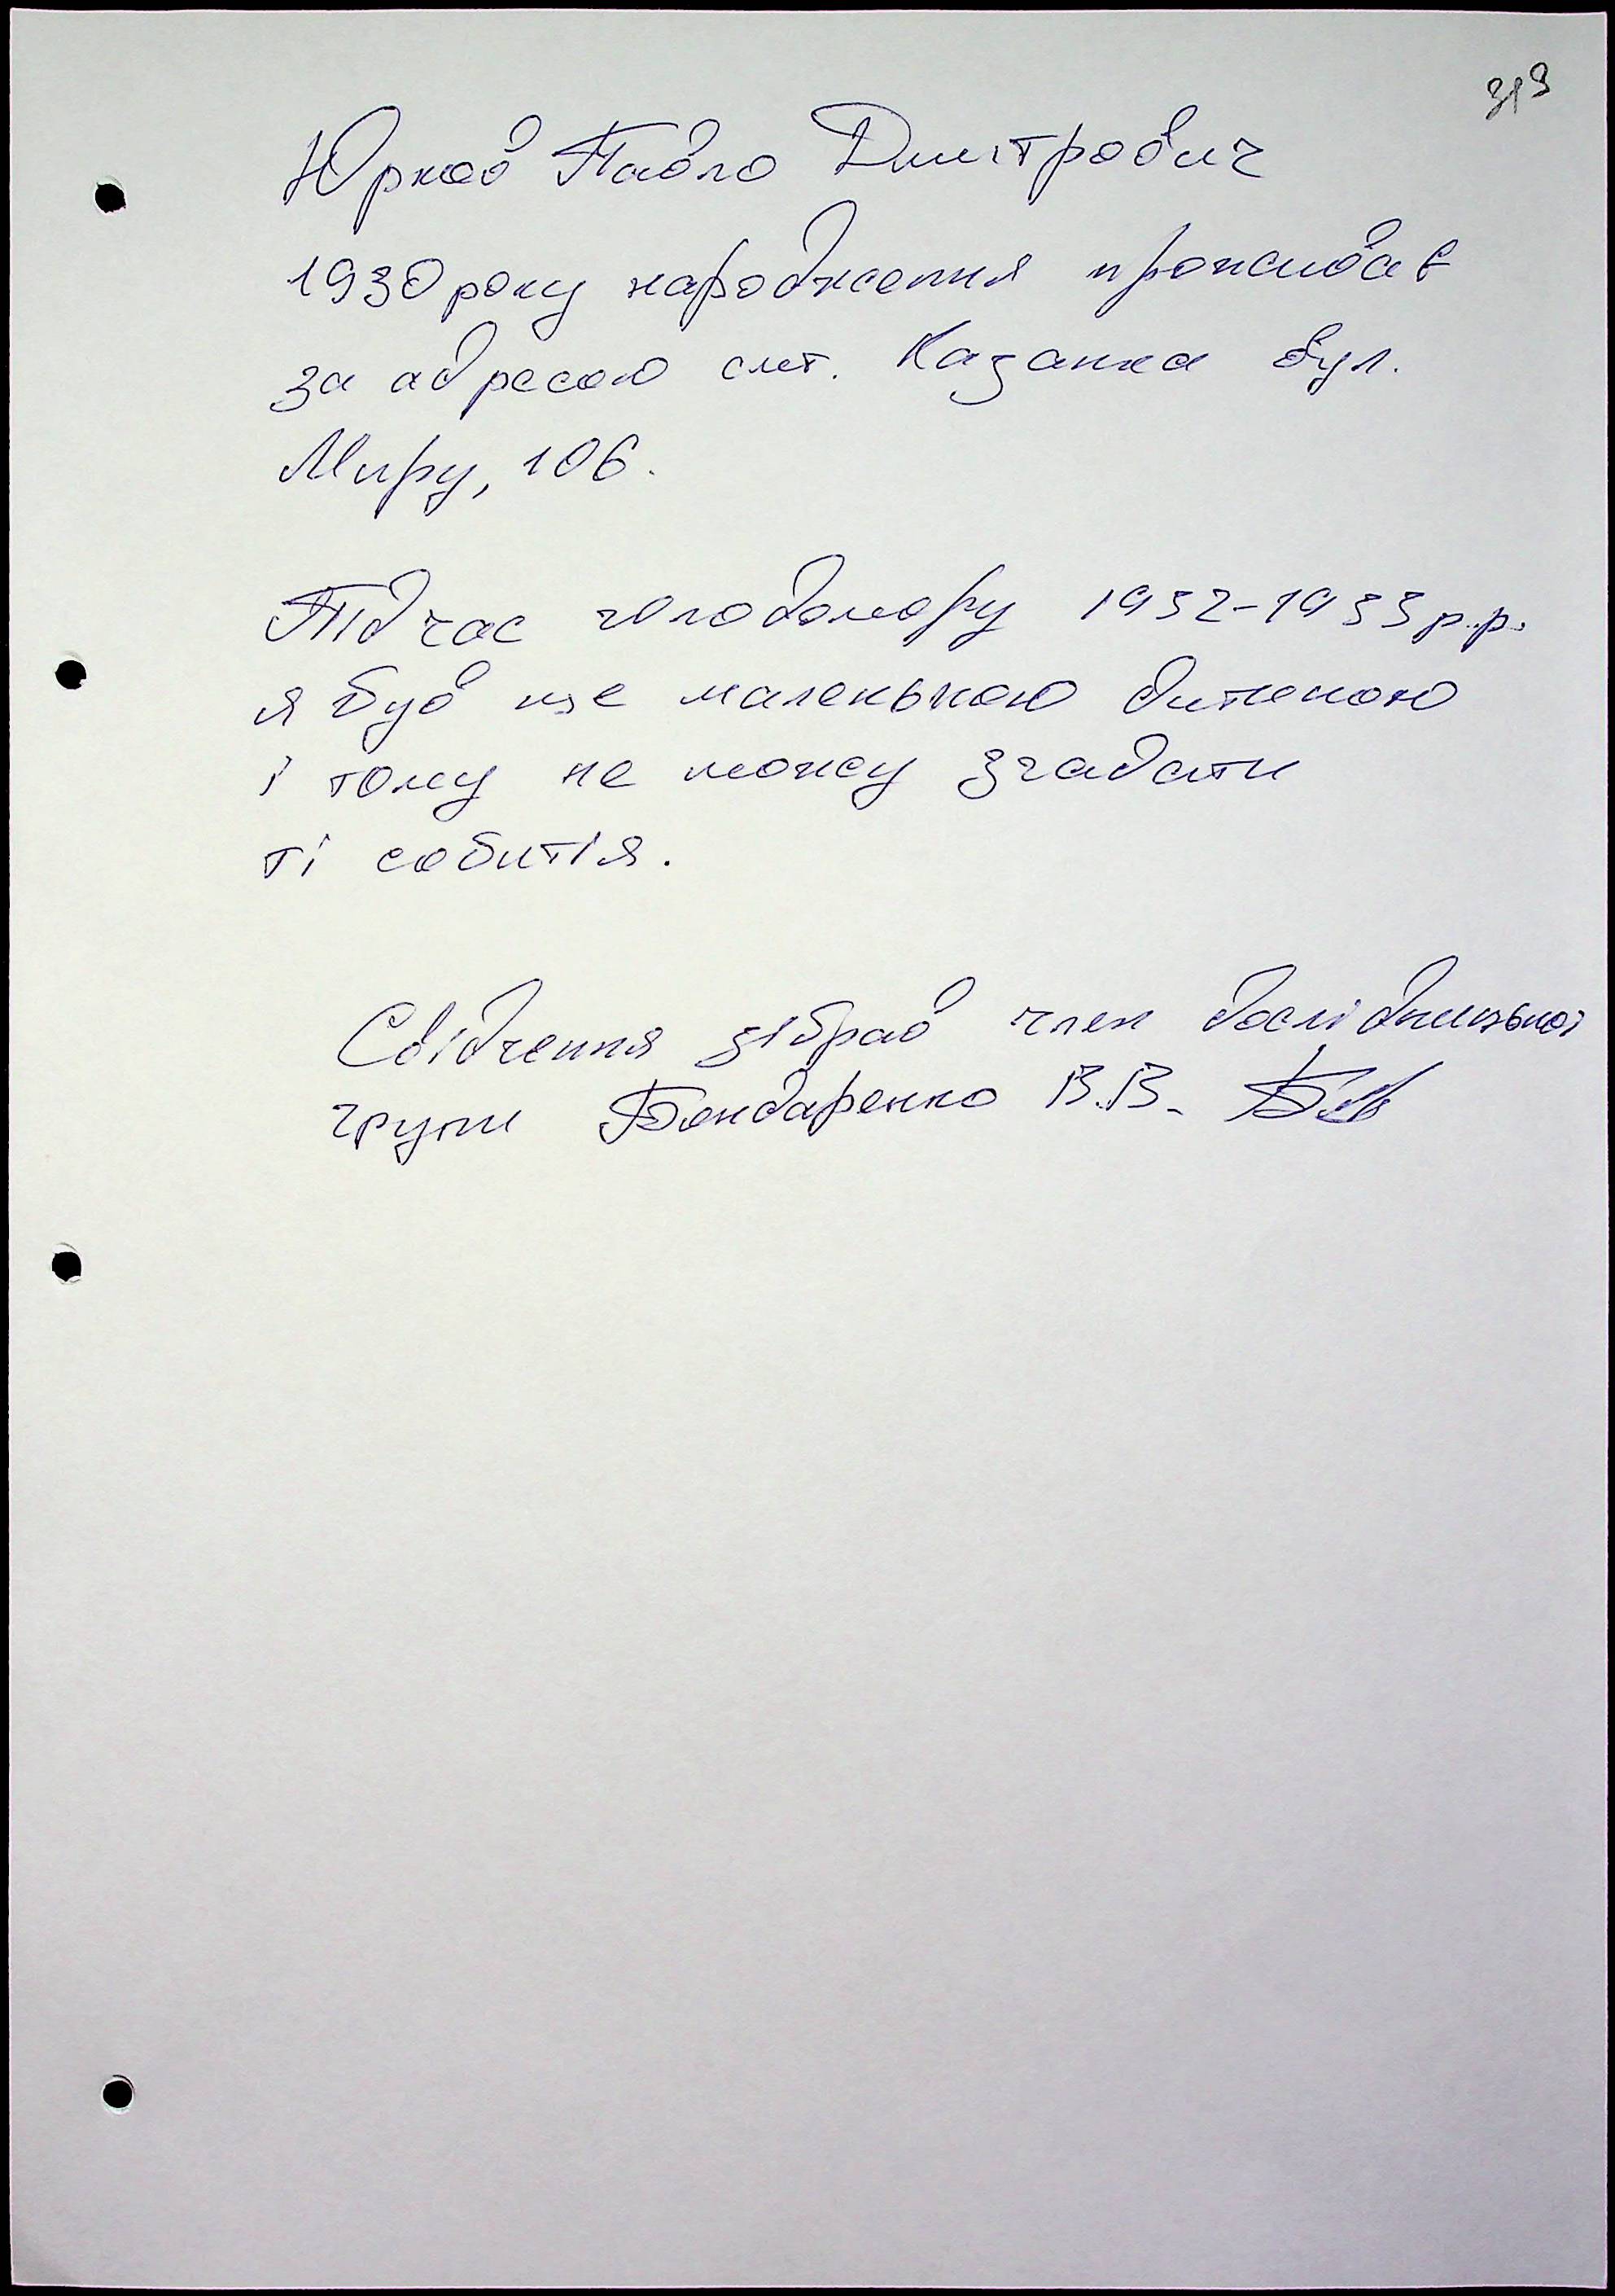 319
Юрков Павло Дмитрович
1930 року народження проживає
за адресою смт. Казанка вул.
Миру, 106.
Під час голодомору 1932-1933 р.р.
я був ще маленькою дитиною
і тому не можу згадати
ті собитія.
Свідчення зібрав член дослідницької
групи Бондаренко В.В.